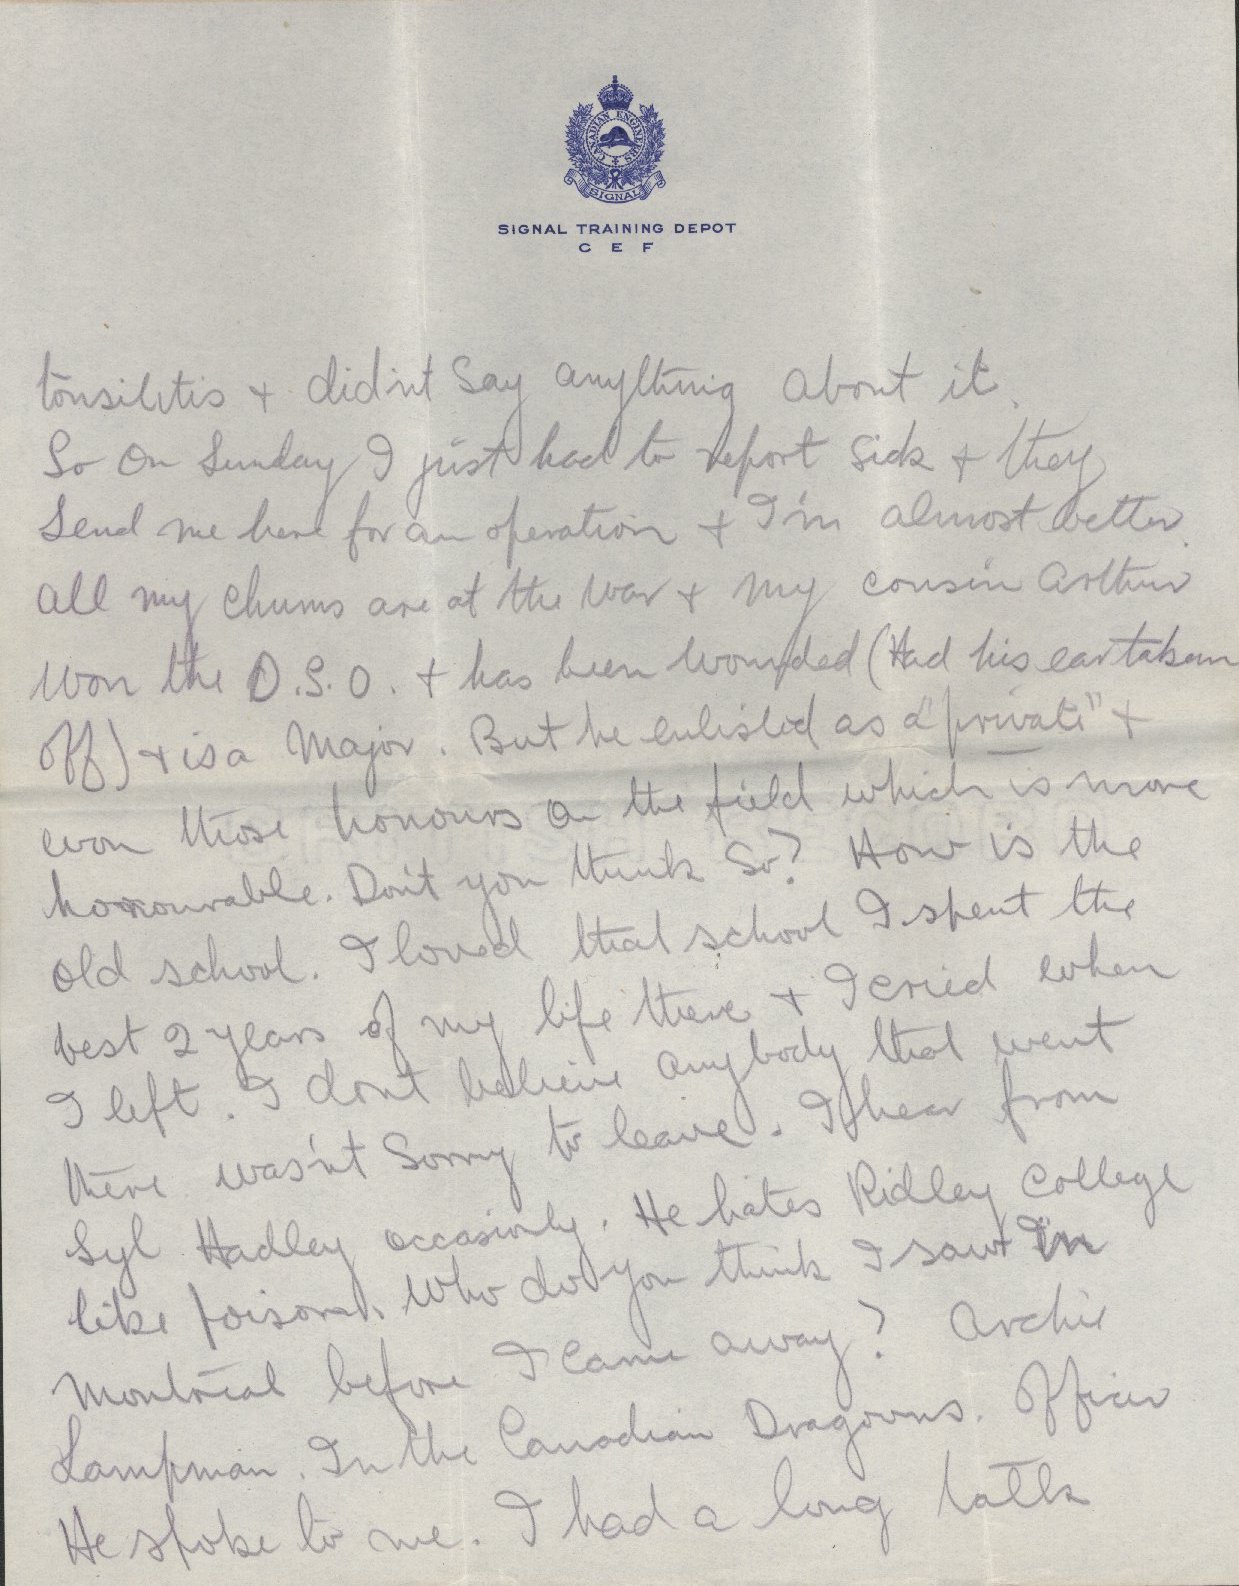 CANADIAN ENGINEERS
SIGNAL
SIGNAL TRAINING DEPOT
C E F
tonsilitis + did'nt Say anything about it.
So on Sunday I just had to report sick + they
Send me here for an operation + I'm almost better.
all my chums are at the war + my cousin Arthur
won the D.S.O. + has been wounded (Had his ear taken
off) + is a Major. But he enlisted as a "private" +
won those honours on the field which is more
honourable. Don't you think So? How is the
old school. I loved that school I spent the
best 2 years of my life there + I cried when
I left. I dont believe anybody that went
there was'nt Sorry to leave. I hear from
Syl Hadley occasionly. He hates Ridley College
like poison. Who do you think I saw in
Montreal before I came away? Archie
Lampman. In the Canadian Dragoons. Officer
He spoke to me. I had a long talk